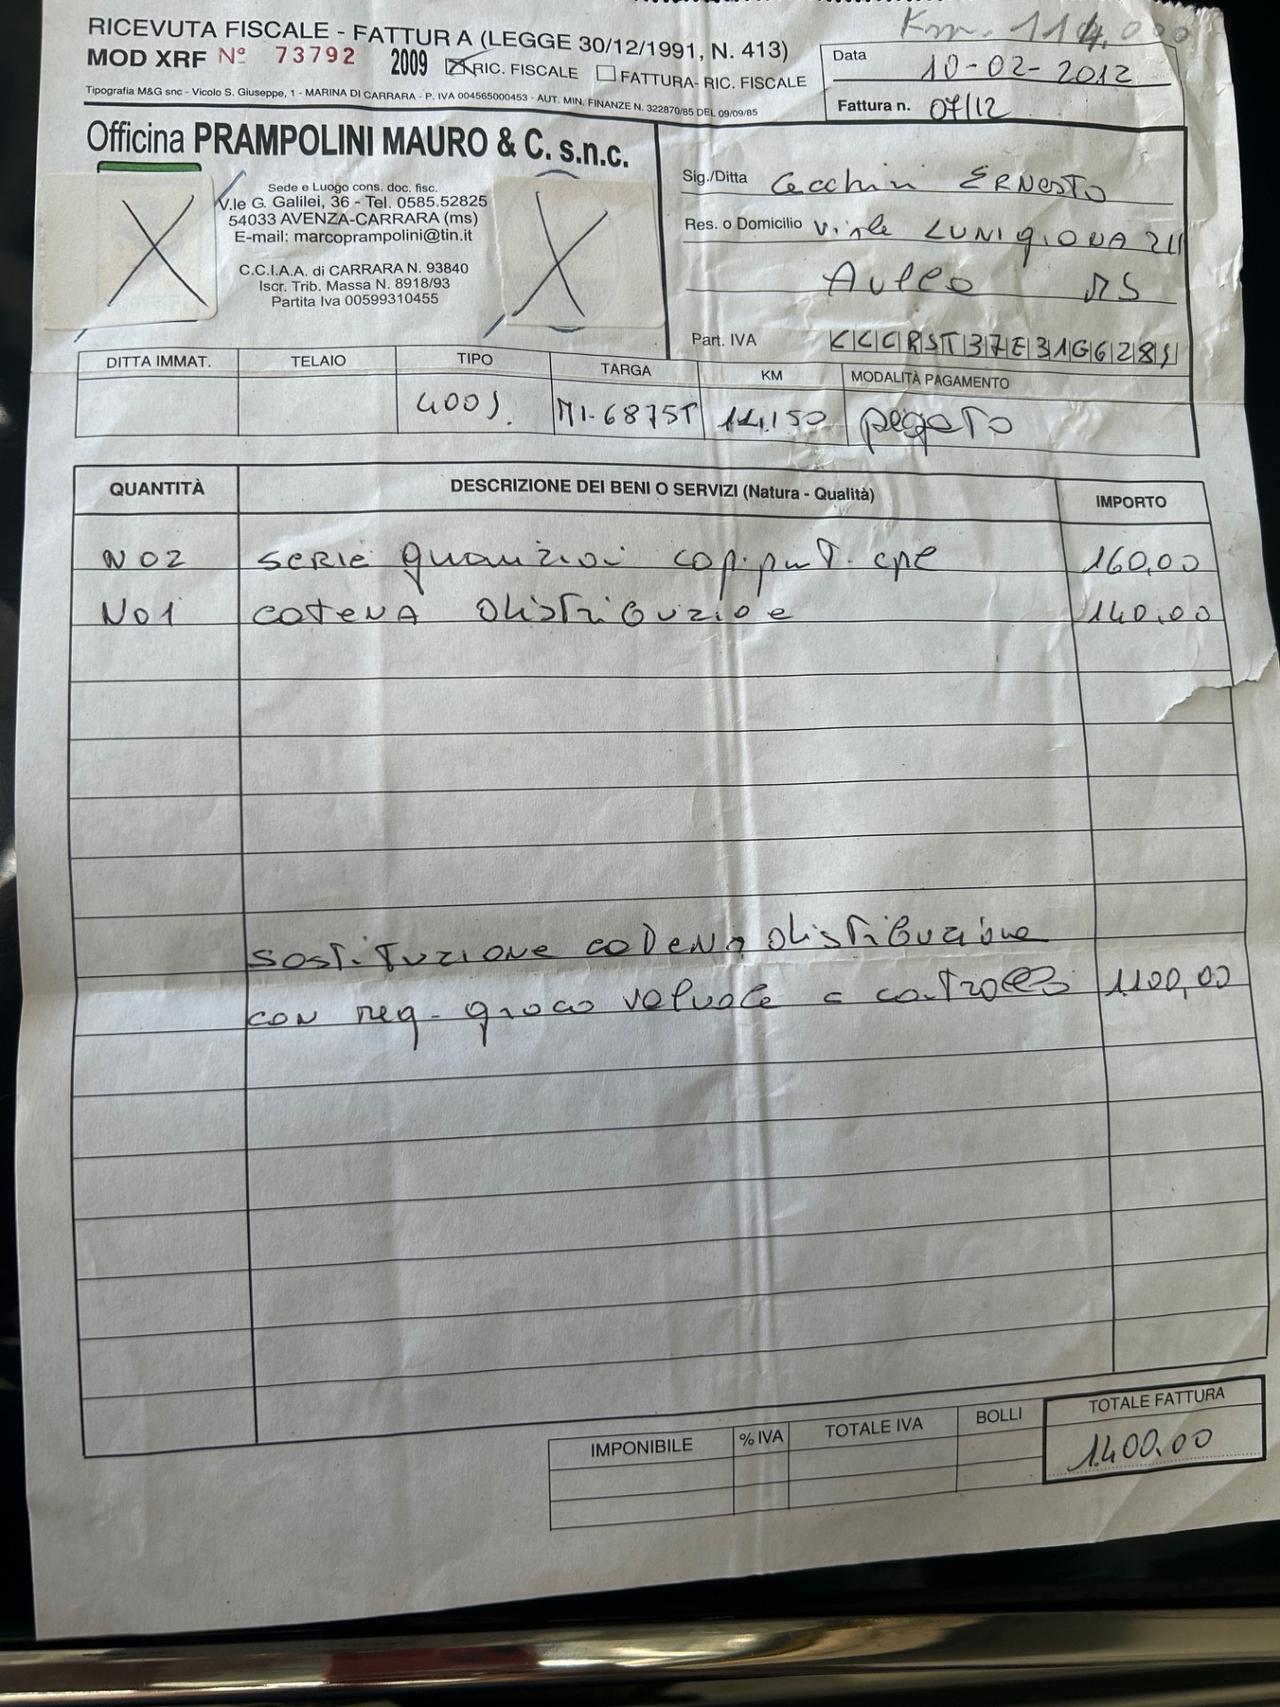 Km. 114.000
RICEVUTA FISCALE - FATTURA (LEGGE 30/12/1991, N. 413)
MOD XRF Nº 73792 2009 RIC. FISCALE FATTURA- RIC. FISCALE
Tipografia M&G snc - Vicolo S. Giuseppe, 1 - MARINA DI CARRARA - P. IVA 004565000453 - AUT. MIN. FINANZE N. 322870/85 DEL 09/09/85
Data 10-02-2012
Fattura n. 07/12
Officina PRAMPOLINI MAURO & C. s.n.c.
Sede e Luogo cons. doc. fisc.
V.le G. Galilei, 36 - Tel. 0585.52825
54033 AVENZA-CARRARA (ms)
E-mail: marcoprampolini@tin.it
C.C.I.A.A. di CARRARA N. 93840
Iscr. Trib. Massa N. 8918/93
Partita Iva 00599310455
Sig./Ditta Cecchini ERNESTO
Res. o Domicilio Viale LUNIGIANA
AULLA MS
Part. IVA
DITTA IMMAT. TELAIO TIPO TARGA KM MODALITÀ PAGAMENTO
MI-6875T pagato
QUANTITÀ DESCRIZIONE DEI BENI O SERVIZI (Natura - Qualità) IMPORTO
N02 serie guarnizioni cop. punt. 160,00
N01 catena distribuzione 140,00
sostituzione catena distribuzione
con reg. gioco valvole e controllo 1100,00
IMPONIBILE % IVA TOTALE IVA BOLLI TOTALE FATTURA
1.400.00